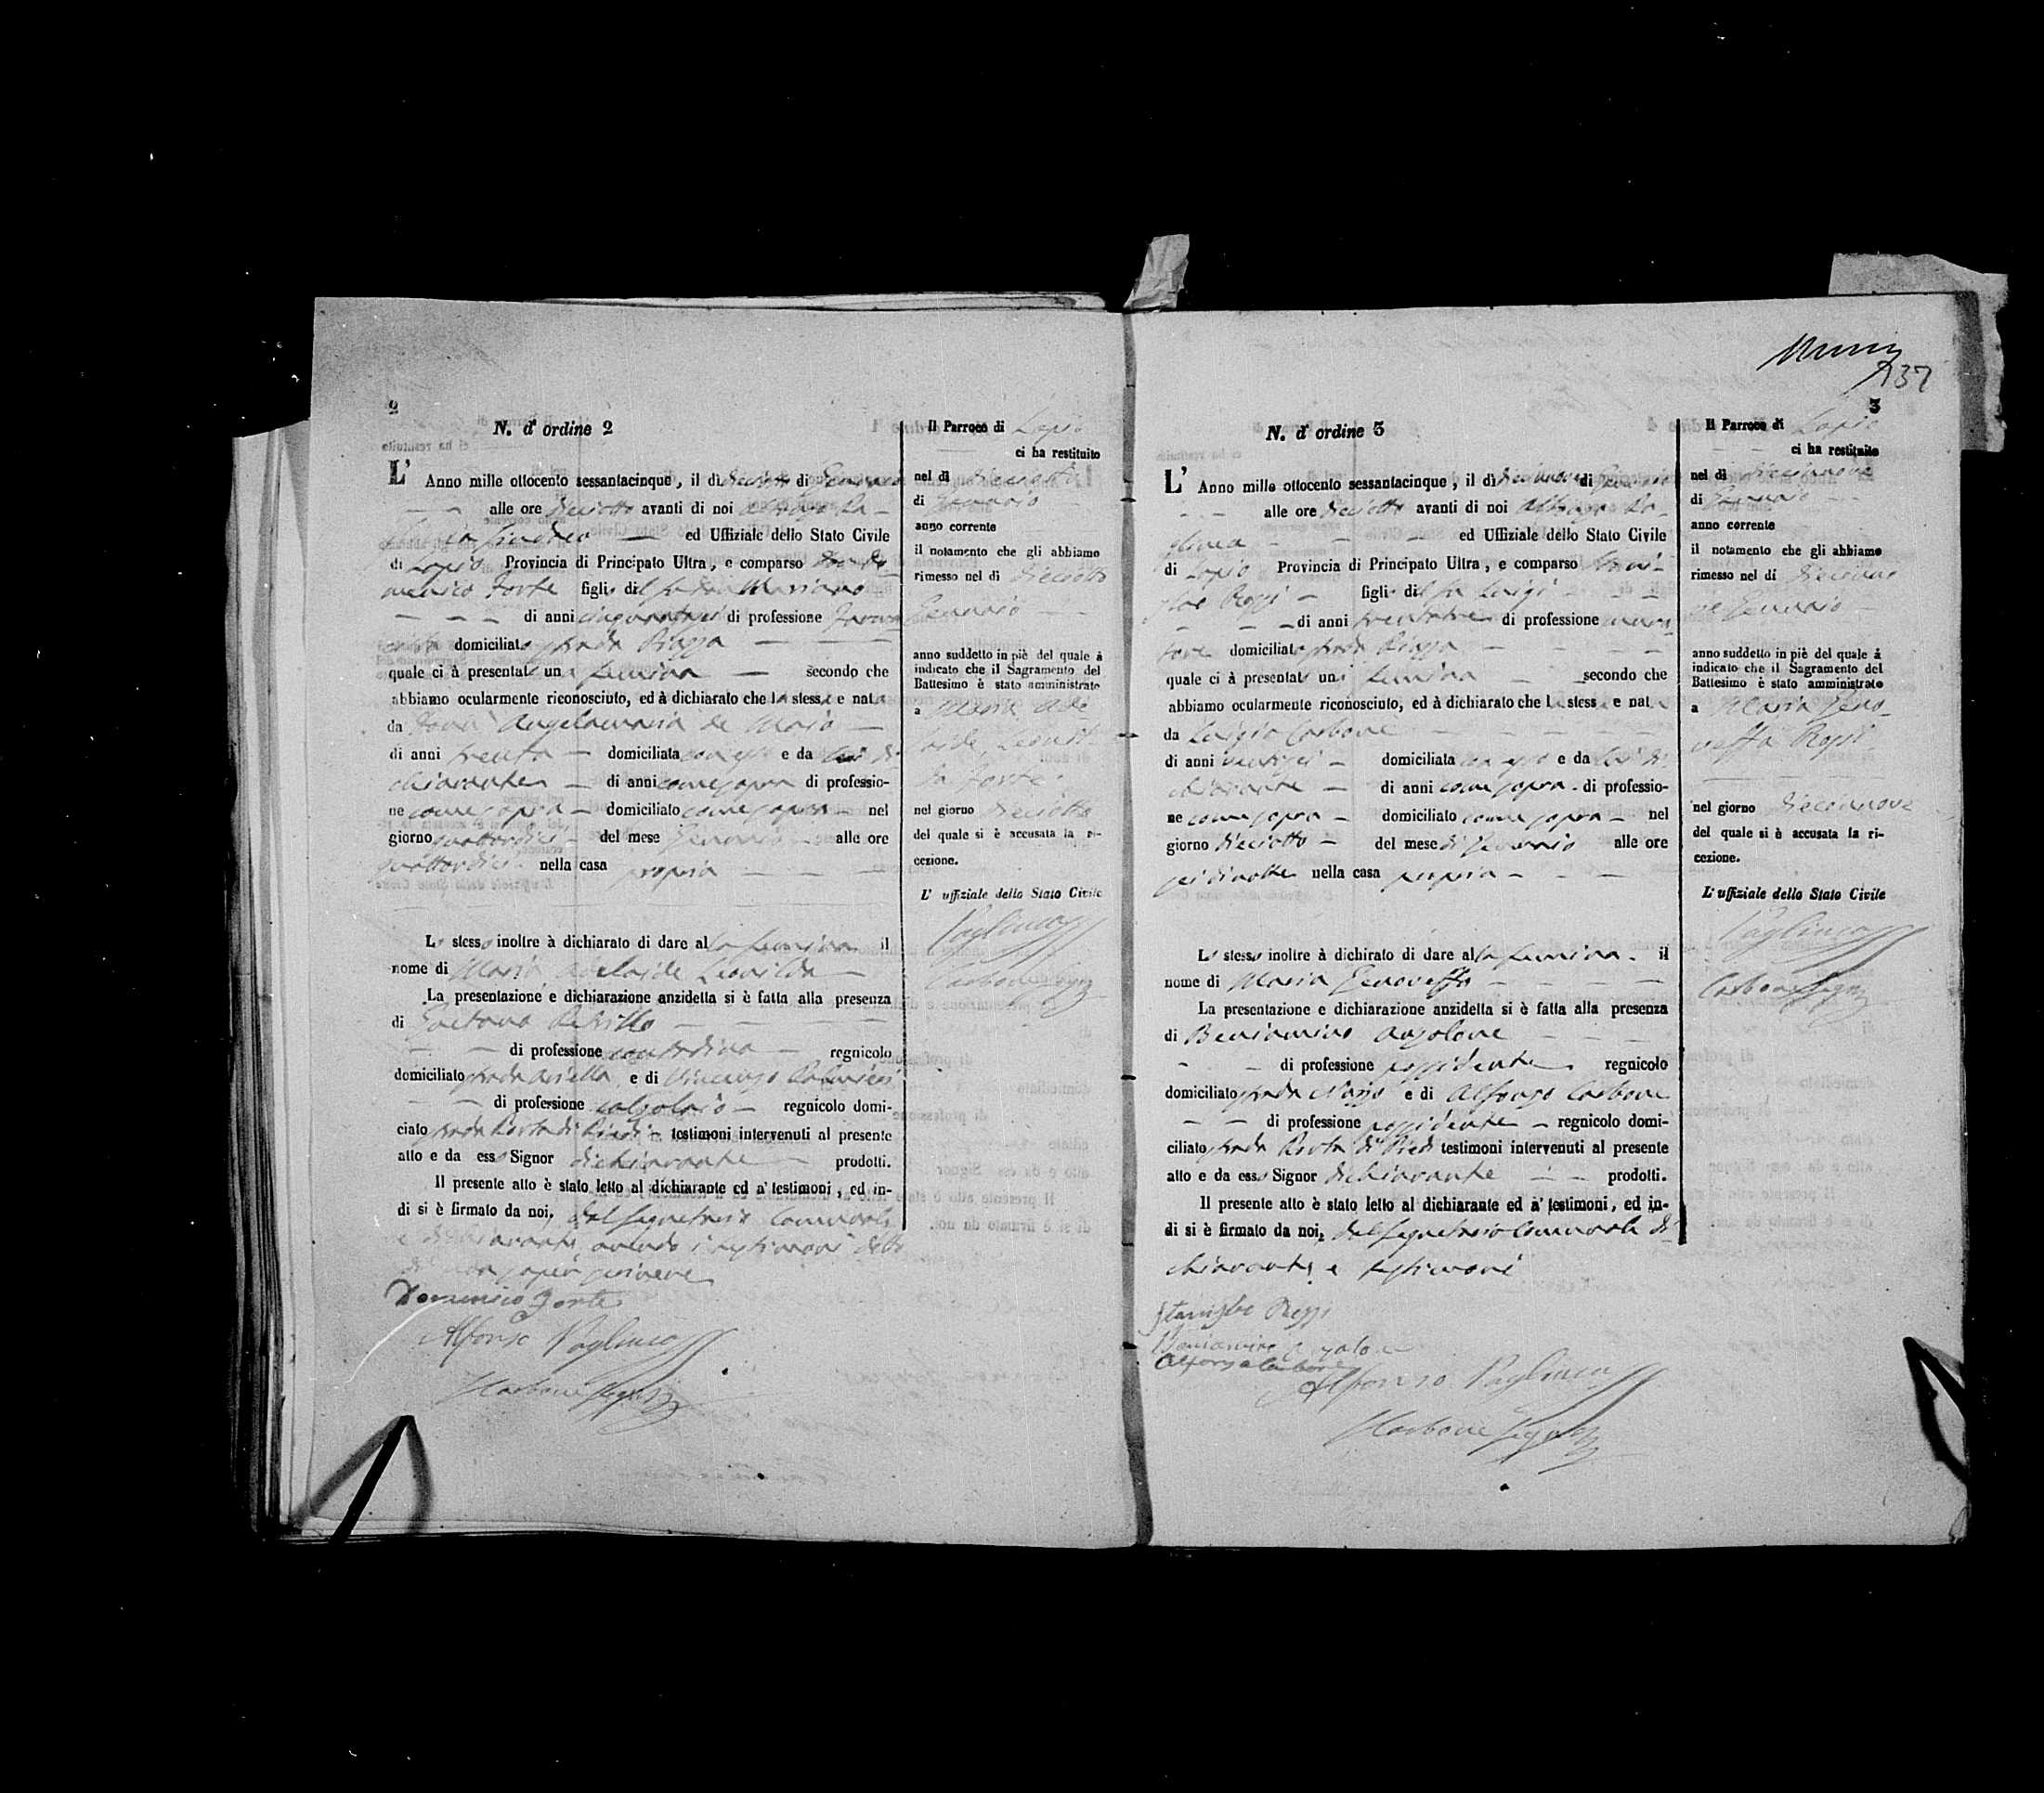 137
2
N. d' ordine 2
L' Anno mille ottocento sessantacinque, il dì dieciotto di Gennaro
alle ore dieciotto avanti di noi Alfonso Pa-
Sindaco ed Uffiziale dello Stato Civile
di Lapio Provincia di Principato Ultra, e comparso Don Do-
menico Forte figlio del fu Don Mariano
di anni di professione
domiciliato strada Piazza
quale ci à presentato una femina secondo che
abbiamo ocularmente riconosciuto, ed à dichiarato che la stessa e nata
da Donna Angelamaria de Mario
di anni trenta domiciliata con esso e da lui di
chiarante di anni come sopra di professio-
ne come sopra domiciliato come sopra nel
giorno quattordici del mese Gennaro alle ore
quattordici nella casa propria
Lo stesso inoltre à dichiarato di dare alla femina il
nome di Maria Adelaide Leonilda
La presentazione e dichiarazione anzidetta si è fatta alla presenza
di Gaetano
di professione contadino regnicolo
domiciliato strada e di Vincenzo
di professione calzolaio regnicolo domi-
ciato strada Porta di Piedi testimoni intervenuti al presente
atto e da esso Signor dichiarante prodotti.
Il presente atto è stato letto al dichiarante ed a' testimoni, ed in-
di si è firmato da noi, dal Segretario Comunale
e dichiarante, avendo i testimoni detto
di non saper scrivere
Domenico Forte
Alfonso Paglinca
Carbone Seg.
Il Parroco di Lapio
ci ha restituito
nel dì dieciotto
di Gennaro
anno corrente
il notamento che gli abbiamo
rimesso nel dì dieciotto
Gennaro
anno suddetto in piè del quale à
indicato che il Sagramento del
Battesimo è stato amministrato
a Maria Ade
laide Leonil
da Forte
nel giorno dieciotto
del quale si è accusata la ri-
cezione.
L' uffiziale dello Stato Civile
Paglinca
Carbone Seg.
3
N. d' ordine 3
L' Anno mille ottocento sessantacinque, il dì diecinove di Gennaro
alle ore dieciotto avanti di noi Alfonso Pa-
glinca ed Uffiziale dello Stato Civile
di Lapio Provincia di Principato Ultra, e comparso Stani-
slao Rossi figlio del fu Luigi
di anni trentatre di professione mura
tore domiciliato strada Piazza
quale ci à presentato una femina secondo che
abbiamo ocularmente riconosciuto, ed à dichiarato che la stessa e nata
da Luigia Carbone
di anni ventisei domiciliata con esso e da lui di
chiarante di anni come sopra di professio-
ne come sopra domiciliato come sopra nel
giorno dieciotto del mese di Gennaro alle ore
sei di notte nella casa propria
Lo stesso inoltre à dichirato di dare alla femina il
nome di Maria Genoveffa
La presentazione e dichiarazione anzidetta si è fatta alla presenza
di Beniamino Anzolone
di professione possidente regnicolo
domiciliato strada e di Alfonso Carbone
di professione possidente regnicolo domi-
ciliato strada Porta di Piedi testimoni intervenuti al presente
atto e da esso Signor dichiarante prodotti.
Il presente atto è stato letto al dichiarante ed a' testimoni, ed in-
di si è firmato da noi, dal Segretario Comunale di
chiarante e testimoni
Stanislao Rossi
Beniamino Anzolone
Alfonso Carbone
Alfonso Paglinca
Carbone Seg.
Il Parroco di Lapio
ci ha restituito
nel dì diecinove
di Gennaro
anno corrente
il notamento che gli abbiamo
rimesso nel dì diecino
ve Gennaro
anno suddetto in piè del quale à
indicato che il Sagramento del
Battesimo è stato amministrato
a Maria Geno
veffa Rossi
nel giorno diecinove
del quale si è accusata la ri-
cezione.
L' uffiziale dello Stato Civile
Paglinca
Carbone Seg.